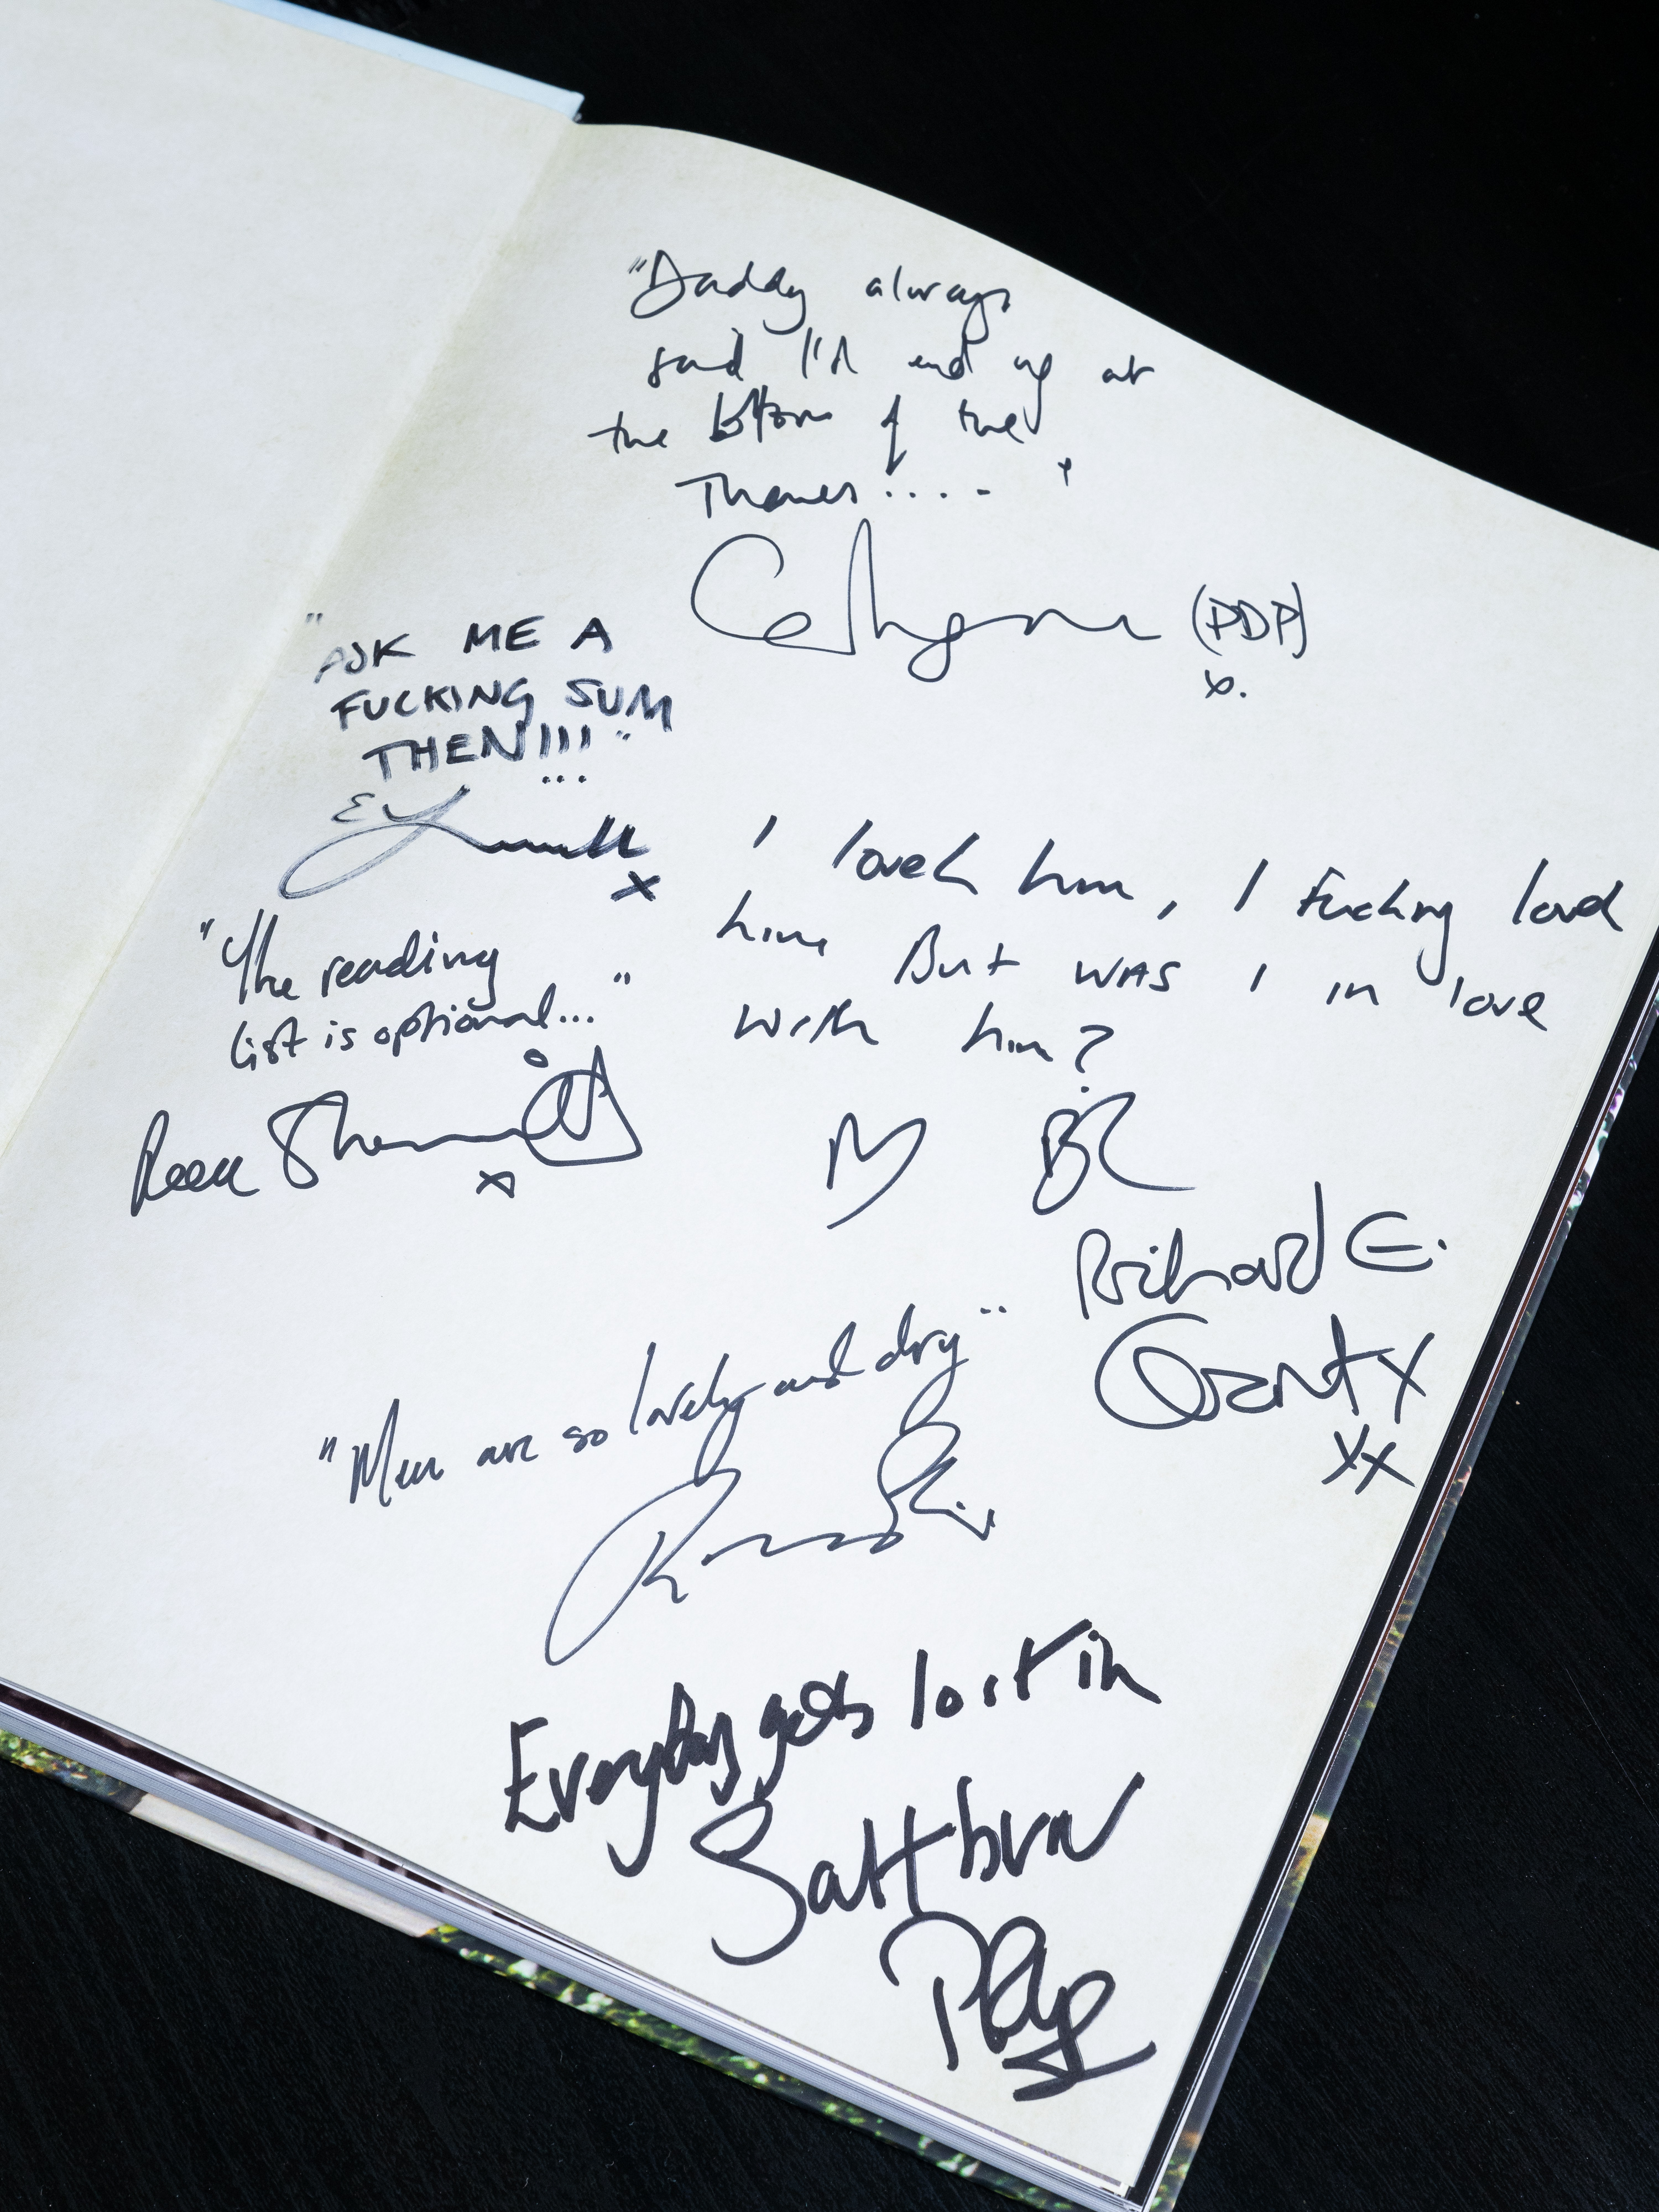 "Daddy always
said I'd end up at
the bottom of the
Thames.... "
(PDP)
x.
"ASK ME A
FUCKING SUM
THEN!!!"
x
I loved him, I fucking loved
him But was I in love
with him?
"The reading
list is optional..."
Reece Shearsmith
x
BK
Richard E.
Grant x
xx
"Men are so lovely and dry"
Everybody gets lost in
Saltburn